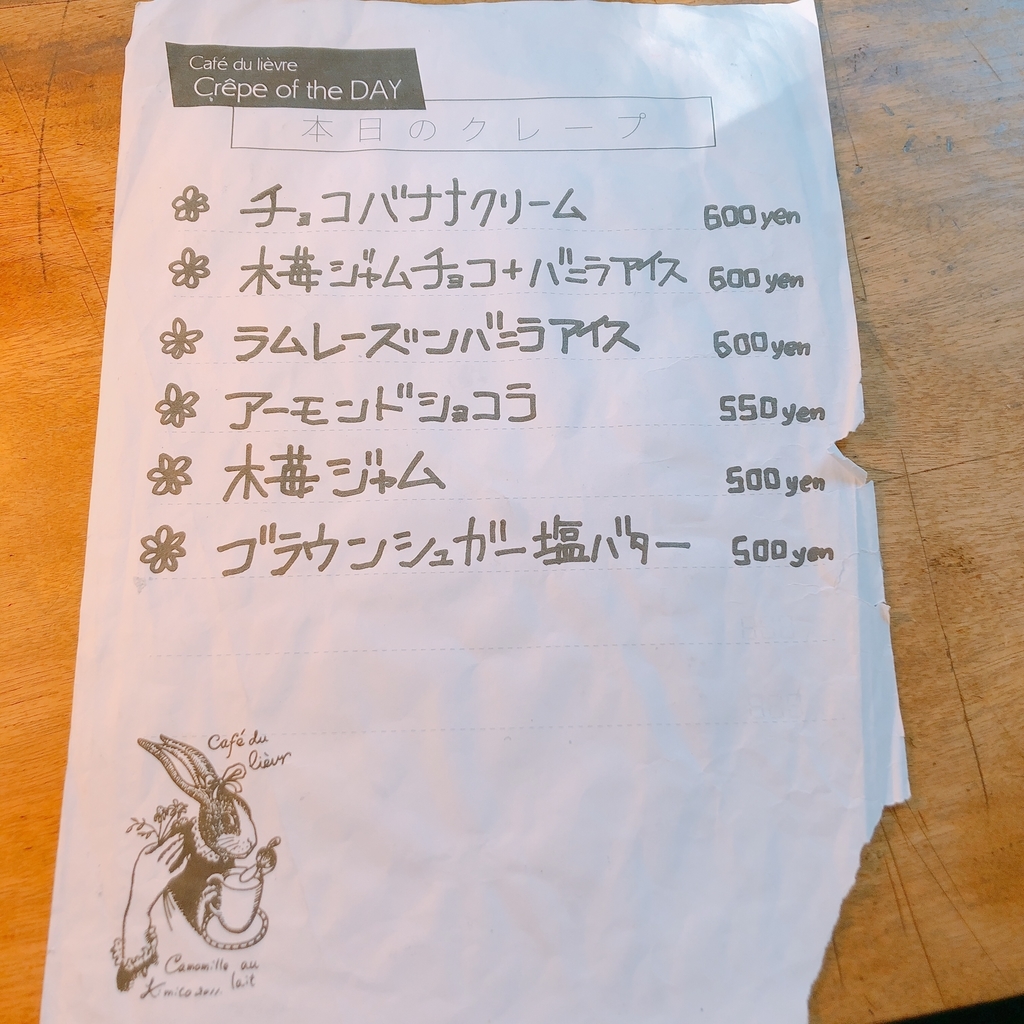 Café du lièvre
Crêpe of the DAY
本日のクレープ
チョコバナナクリーム 600yen
木苺ジャムチョコ+バニラアイス 600yen
ラムレーズンバニラアイス 600yen
アーモンドショコラ 550yen
木苺ジャム 500yen
ブラウンシュガー塩バター 500yen
Café du
lièvr
Camomille au
lait
Kimico 2011.